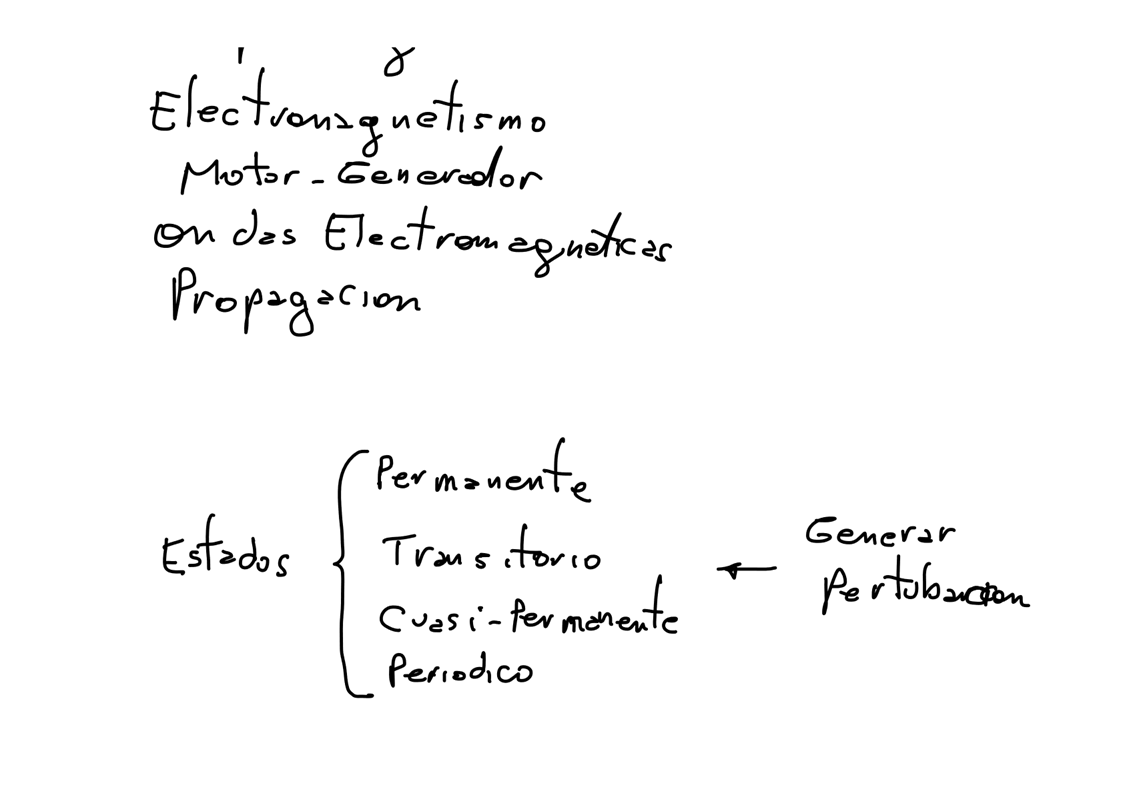 Electromagnetismo
Motor - Generador
ondas Electromagneticas
Propagacion
Estados
Permanente
Transitorio
Cuasi-Permanente
Periodico
Generar
Pertubacion